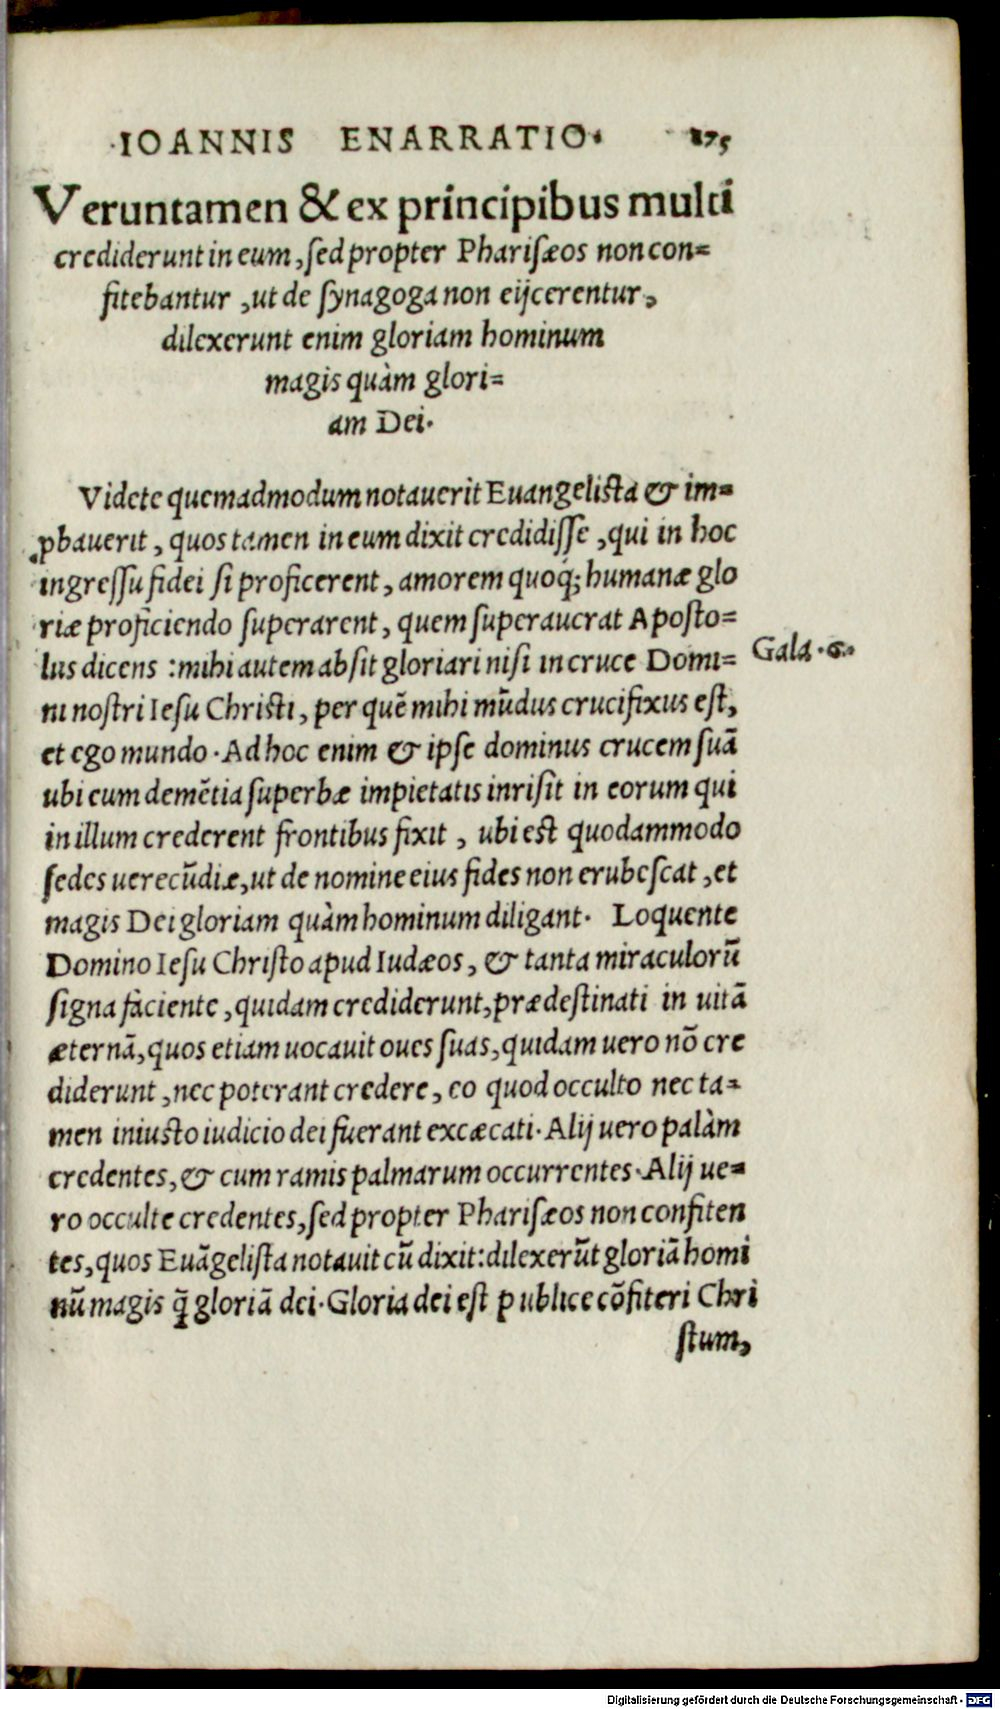 ·IOANNIS ENARRATIO· 175
Veruntamen & ex principibus multi
crediderunt in eum, sed propter Pharisæos non con=
fitebantur, ut de synagoga non eijcerentur,
dilexerunt enim gloriam hominum
magis quàm glori=
am Dei.
Videte quemadmodum notauerit Euangelista & im=
ꝓbauerit, quos tamen in eum dixit credidisse, qui in hoc
ingressu fidei si proficerent, amorem quoq; humanæ glo
riæ proficiendo superarent, quem superauerat Aposto=
lus dicens: mihi autem absit gloriari nisi in cruce Domi=
ni nostri Iesu Christi, per quē mihi mūdus crucifixus est,
et ego mundo. Ad hoc enim & ipse dominus crucem suā
ubi eum demētia superbæ impietatis inrisit in eorum qui
in illum crederent frontibus fixit, ubi est quodammodo
sedes uerecūdiæ, ut de nomine eius fides non erubescat, et
magis Dei gloriam quàm hominum diligant. Loquente
Domino Iesu Christo apud Iudæos, & tanta miraculorū
signa faciente, quidam crediderunt, prædestinati in uitā
æternā, quos etiam uocauit oues suas, quidam uero nō cre
diderunt, nec poterant credere, eo quod occulto nec ta=
men iniusto iudicio dei fuerant excæcati. Alij uero palàm
credentes, & cum ramis palmarum occurrentes. Alij ue=
ro occulte credentes, sed propter Pharisæos non confiten
tes, quos Euāgelista notauit cū dixit: dilexerūt gloriā homi
nū magis q̄ gloriā dei. Gloria dei est publice cōfiteri Chri
stum,
Gala. 6.
Digitalisierung gefördert durch die Deutsche Forschungsgemeinschaft - DFG